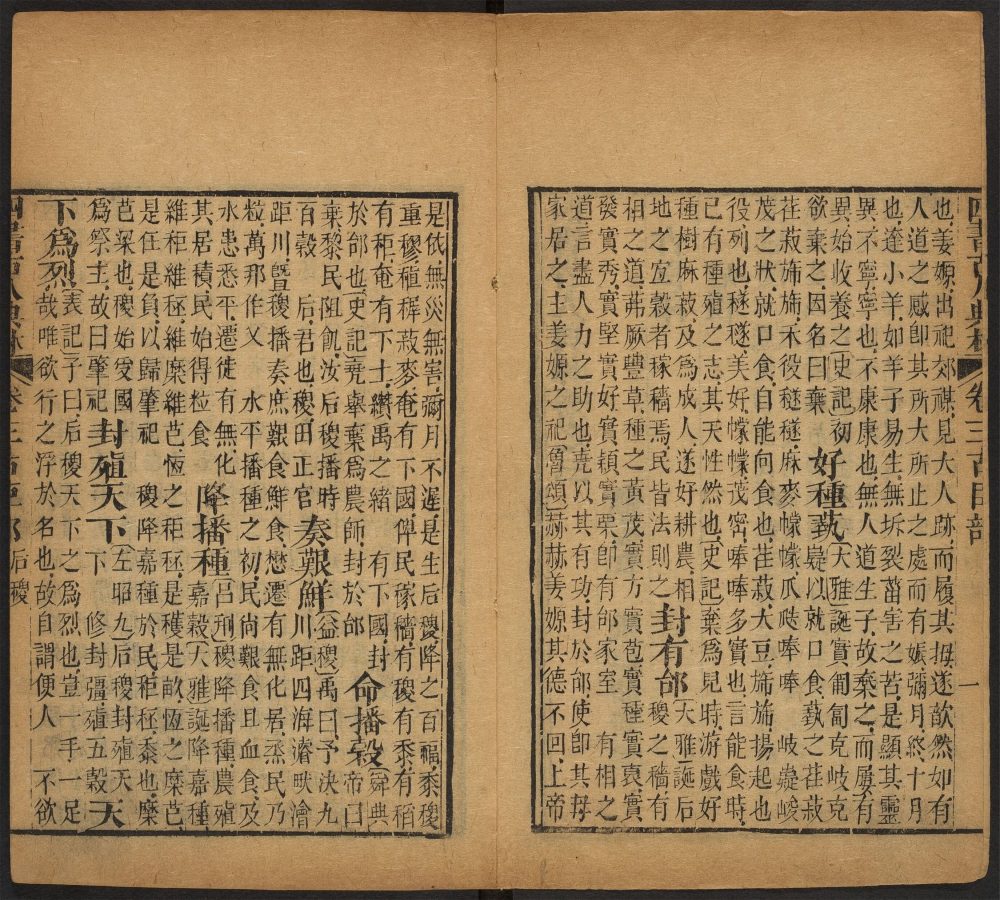 也姜嫄出祀郊禖見大人跡而履其拇遂歆然如有
人道之感卽其所大所止之處而有娠彌月終十月
也達小羊如羊子易生無坼裂菑害之苦是顯其靈
異不寧寧也不康康也無人道生子故棄之而屢有
異始收養之史記初
欲棄之因名曰棄 好種蓺大雅誕實匍匐克岐克
嶷以就口食蓺之荏菽
荏菽旆旆禾役穟穟麻麥幪幪瓜瓞唪唪 岐嶷峻
茂之狀就口食自能向食也荏菽大豆旆旆揚起也
役列也穟穟美好幪幪茂密唪唪多實也言能食時
已有種殖之志其天性然也史記棄爲兒時游戲好
種樹麻菽及爲成人遂好耕農相
地之宜穀者稼穡焉民皆法則之 封有邰大雅誕后
稷之穡有
相之道茀厥豐草種之黃茂實方實苞實種實裒實
發實秀實堅實好實穎實栗卽有邰家室 有相之
道言盡人力之助也堯以其有功封於邰使卽其母
家居之主姜嫄之祀魯頌赫赫姜嫄其德不回上帝
是依無災無害彌月不遲是生后稷降之百福黍稷
重穋稙稺菽麥奄有下國俾民稼穡有稷有黍有稻
有秬奄有下土纘禹之緒 有下國封
於邰也史記堯舉棄爲農師封於邰 命播穀舜典
帝曰
棄黎民阻飢汝后稷播時
百穀 后君也稷田正官 奏艱鮮益稷禹曰予決九
川距四海濬畎澮
距川曁稷播奏庶艱食鮮食懋遷有無化居烝民乃
粒萬邦作乂 水平播種之初民尚艱食且血食及
水患悉平遷徙有無化
其居積民始得粒食 降播種呂刑稷降播種農殖
嘉穀大雅誕降嘉種
維秬維秠維穈維芑恆之秬秠是穫是畝恆之穈芑
是任是負以歸肇祀 稷降嘉種於民秬秠黍也穈
芑粱也稷始受國
爲祭主故曰肇祀 封殖天下左昭九后稷封殖天
下 修封疆殖五穀 天
下爲烈表記子曰后稷天下之爲烈也豈一手一足
哉唯欲行之浮於名也故自謂便人 不欲